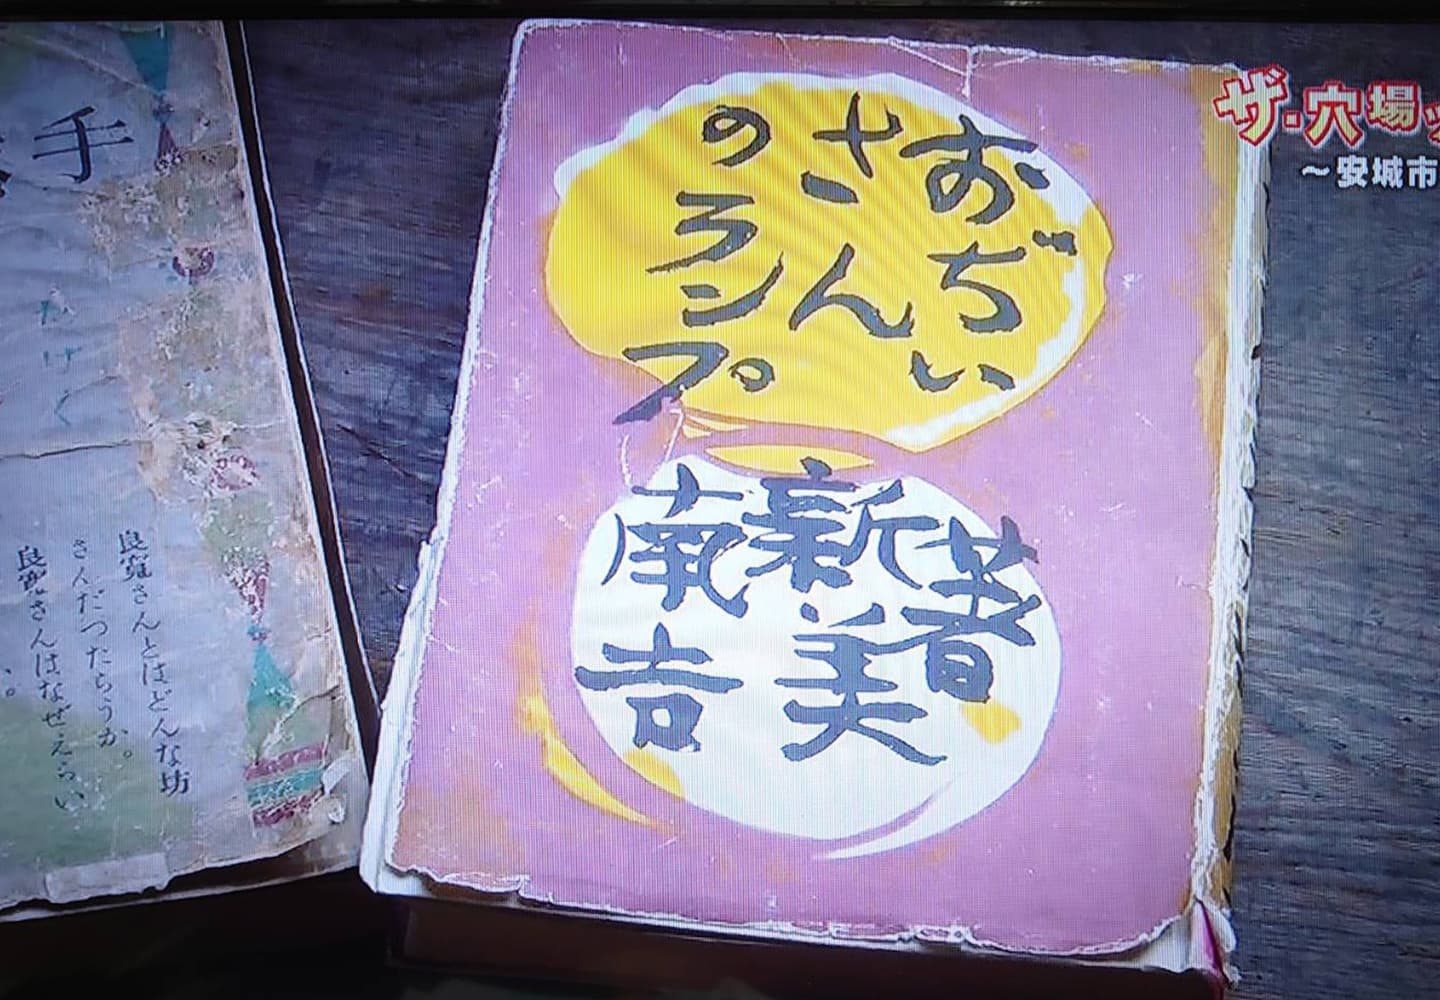 おぢい
さんの
ランプ
著
新美
南吉
ザ・穴場ツ
～安城市
手
良寛さんとはどんな坊
さんだつたらうか。
良寛さんはなぜえらい